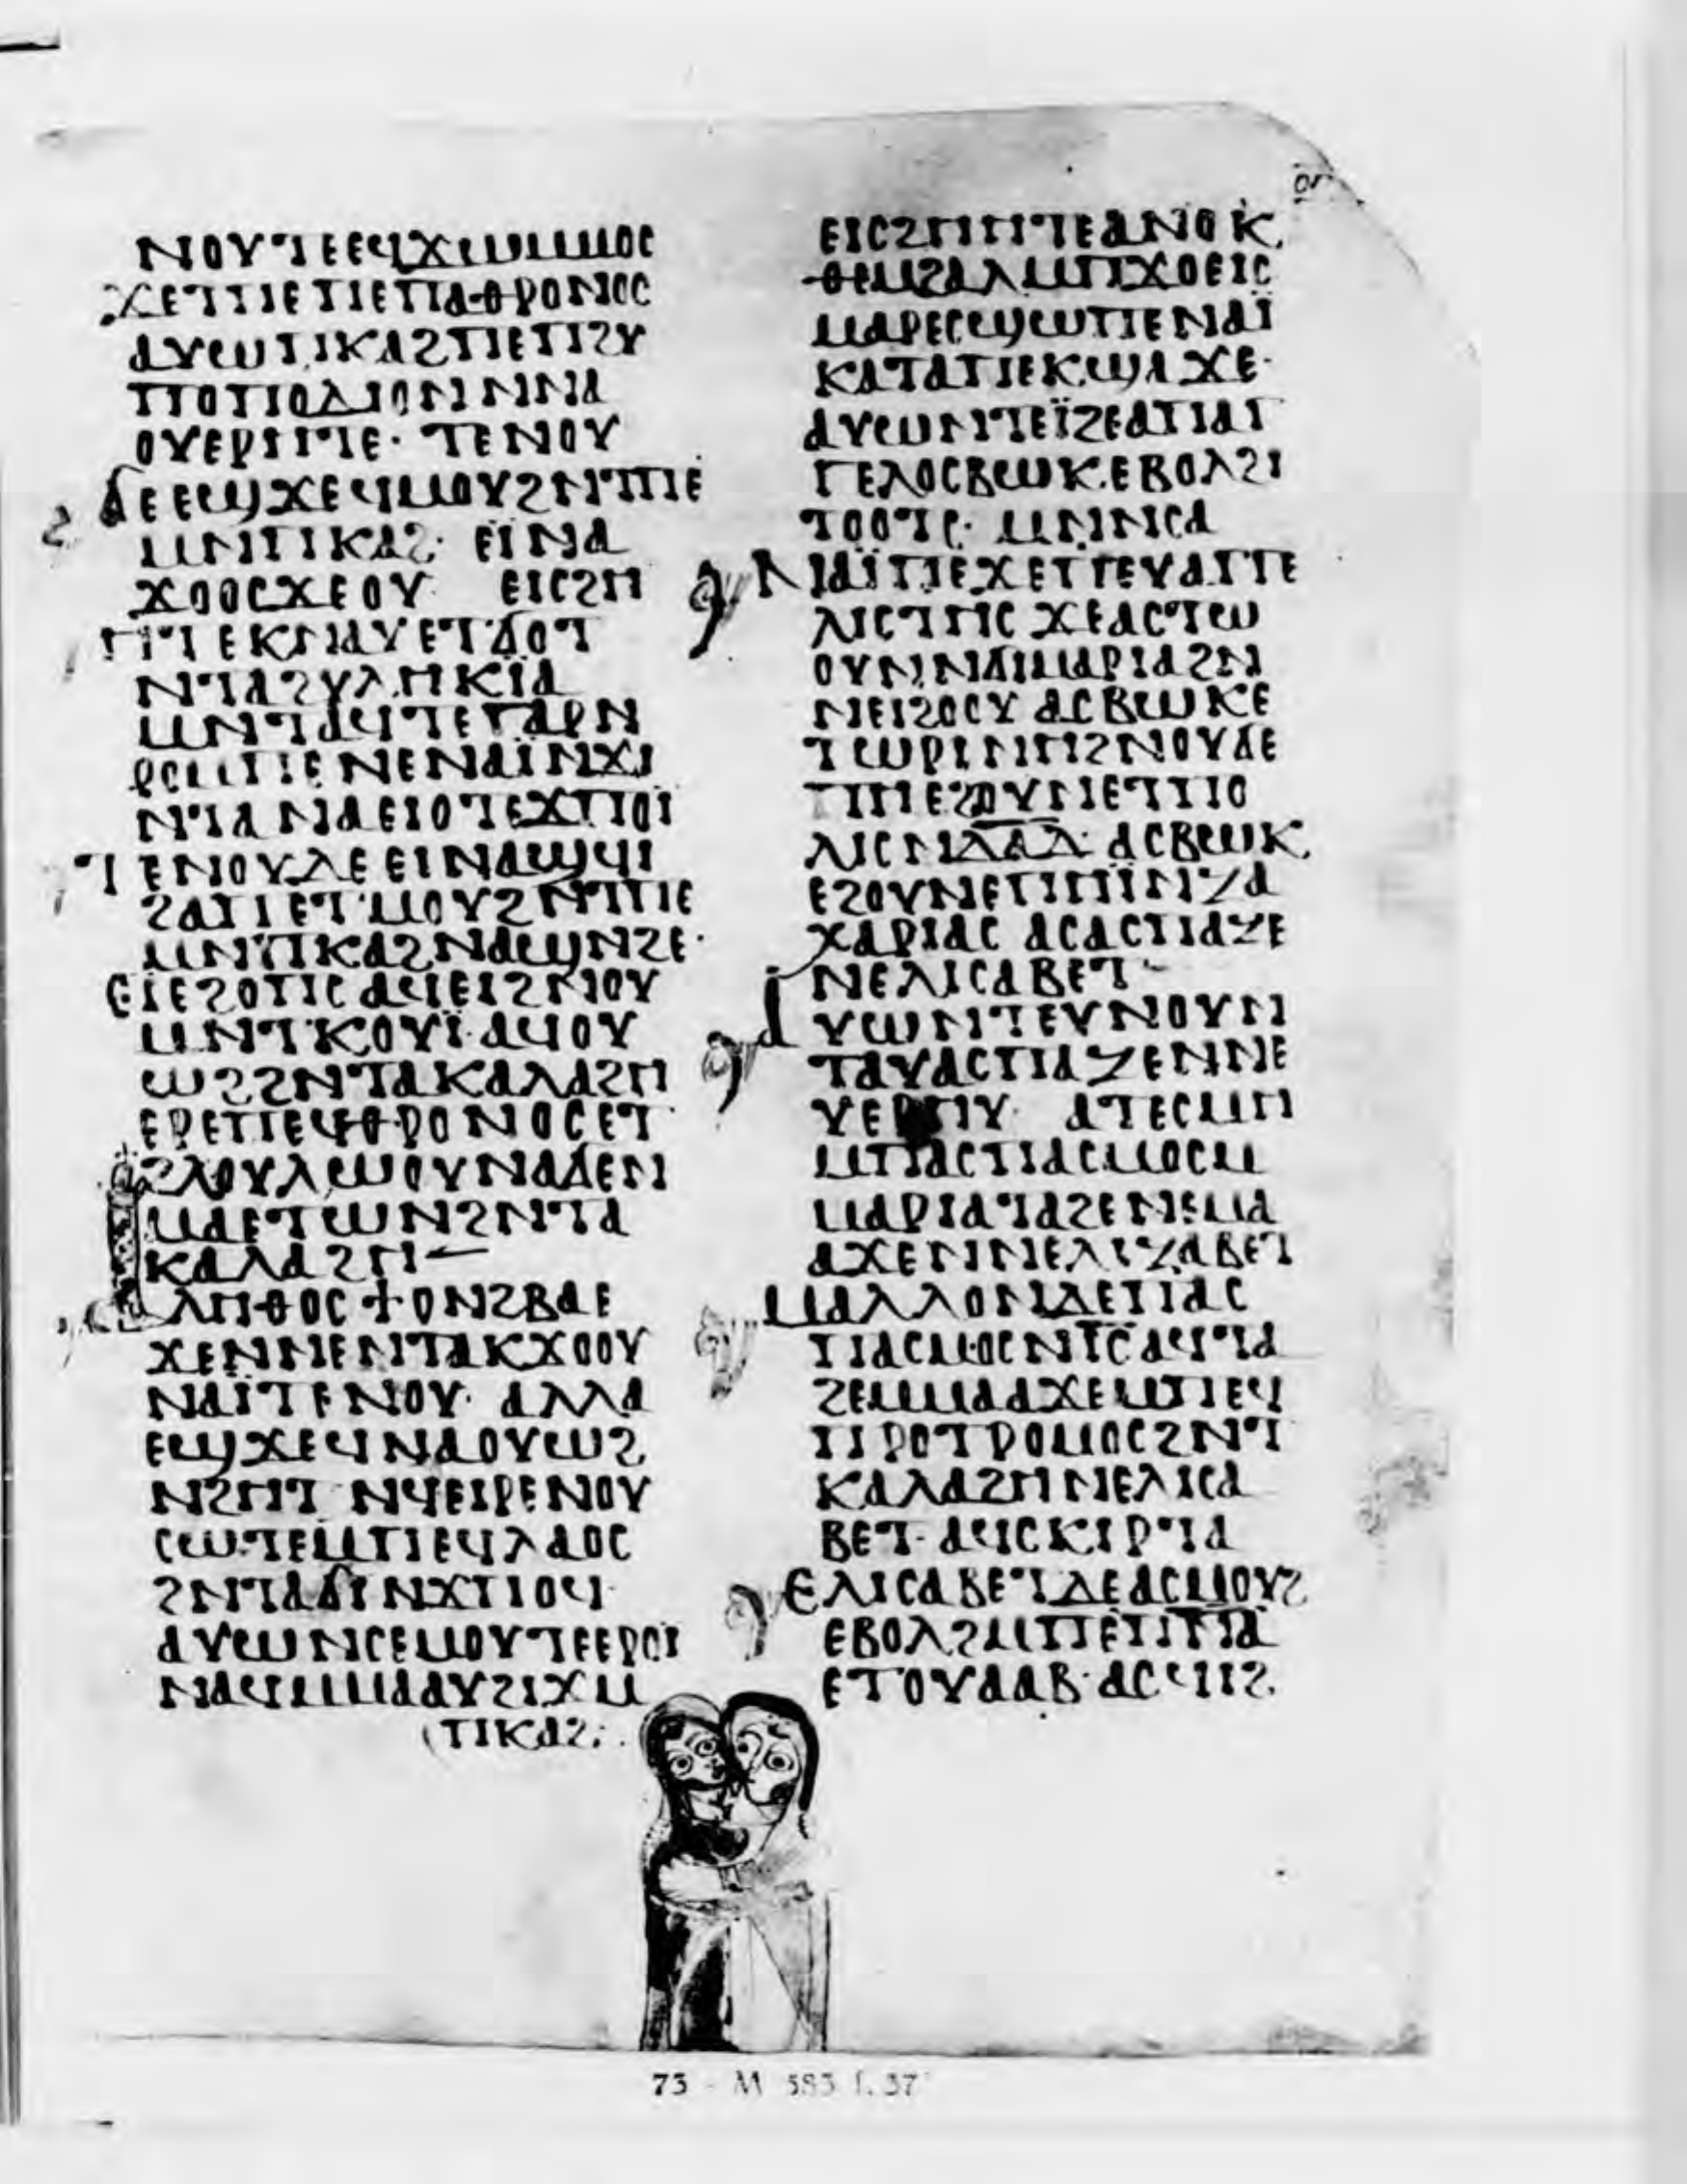 ⲛⲟⲩⲧⲉⲉϥϫⲱⲙⲙⲟⲥ
ϫⲉⲧⲡⲉⲧⲉⲡⲁⲑⲣⲟⲛⲟⲥ
ⲁⲩⲱⲡⲕⲁϩⲡⲉⲡϩⲩ
ⲡⲟⲡⲟⲇⲓⲟⲛⲛⲛⲁ
ⲟⲩⲉⲣⲏⲧⲉ· ⲧⲉⲛⲟⲩ
ϭⲉⲉϣϫⲉϥⲙⲟⲩϩⲛⲧⲡⲉ
ⲙⲛⲡⲕⲁϩ· ⲉⲓⲛⲁ
ϫⲟⲟⲥϫⲉⲟⲩ ⲉⲓⲥϩⲏ
ⲏⲧⲉⲕⲛⲁⲩⲉⲧϭⲟⲧ
ⲛⲧⲁϩⲩⲗⲏⲕⲓⲁ
ⲙⲛⲧⲁϥⲧⲉⲅⲁⲣⲛ
ⲣⲟⲙⲡⲉⲛⲉⲛⲁⲓⲛϫⲓ
ⲛⲧⲁⲛⲁⲉⲓⲟⲧⲉϫⲡⲟⲓ
ⲧⲉⲛⲟⲩⲇⲉⲉⲓⲛⲁϣϥⲓ
ϩⲁⲡⲉⲧⲙⲟⲩϩⲛⲧⲡⲉ
ⲙⲛⲡⲕⲁϩⲛⲁϣⲛϩⲉ·
ⲉⲓⲉϩⲟⲧⲓⲥⲁϥⲉⲓϩⲛⲟⲩ
ⲙⲛⲧⲕⲟⲩⲓ· ⲁϥⲟⲩ
ⲱϩϩⲛⲧⲁⲕⲁⲗⲁϩⲏ
ⲉⲣⲉⲡⲉϥⲑⲣⲟⲛⲟⲥⲉⲧ
ϩⲗⲟⲩⲗⲱⲟⲩⲛⲁϭⲉⲛ
ⲙⲁⲉⲧⲱⲛϩⲛⲧⲁ
ⲕⲁⲗⲁϩⲏ
ⲁⲗⲏⲑⲟⲥϯⲟⲛϩⲃⲁⲉ
ϫⲉⲛⲛⲉⲛⲧⲁⲕϫⲟⲟⲩ
ⲛⲁⲓⲧⲉⲛⲟⲩ· ⲁⲗⲗⲁ
ⲉϣϫⲉϥⲛⲁⲟⲩⲱϩ
ⲛϩⲏⲧ ⲛϥⲉⲓⲣⲉⲛⲟⲩ
ⲥⲱⲧⲉⲙⲡⲉϥⲗⲁⲟⲥ
ϩⲛⲧⲁϭⲓⲛϫⲡⲟϥ·
ⲁⲩⲱⲛⲥⲉⲙⲟⲩⲧⲉⲉⲣⲟⲓ
ⲛⲁϥⲙⲙⲁⲁⲩϩⲓϫⲙ
ⲡⲕⲁϩ:
ⲉⲓⲥϩⲏⲏⲧⲉⲁⲛⲟⲕ
ⲑⲙϩⲁⲗⲙⲡϫⲟⲉⲓⲥ
ⲙⲁⲣⲉⲥϣⲱⲡⲉⲛⲁⲓ
ⲕⲁⲧⲁⲡⲉⲕϣⲁϫⲉ·
ⲁⲩⲱⲛⲧⲉⲓϩⲉⲁⲡⲁⲅ
ⲅⲉⲗⲟⲥⲃⲱⲕⲉⲃⲟⲗϩⲓ
ⲧⲟⲟⲧⲥ· ⲙⲛⲛⲥⲁ
ⲛⲁⲓⲡⲉϫⲉⲡⲉⲩⲁⲅⲅⲉ
ⲗⲓⲥⲧⲏⲥϫⲉⲁⲥⲧⲱ
ⲟⲩⲛⲛϭⲓⲙⲁⲣⲓⲁϩⲛ
ⲛⲉⲓϩⲟⲟⲩ ⲁⲥⲃⲱⲕⲉ
ⲧⲱⲣⲓⲛⲏϩⲛⲟⲩϭⲉ
ⲡⲏⲉϩⲟⲩⲛⲉⲧⲡⲟ
ⲗⲓⲥⲛⲇⲁⲇ· ⲁⲥⲃⲱⲕ
ⲉϩⲟⲩⲛⲉⲡⲏⲓⲛⲍⲁ
ⲭⲁⲣⲓⲁⲥ ⲁⲥⲁⲥⲡⲁⲍⲉ
ⲛⲉⲗⲓⲥⲁⲃⲉⲧ
ⲁⲩⲱⲛⲧⲉⲩⲛⲟⲩⲛ
ⲧⲁⲩⲁⲥⲡⲁⲍⲉⲛⲛⲉ
ⲩⲉⲣⲏⲩ· ⲁⲧⲉⲥⲙⲏ
ⲙⲡⲁⲥⲡⲁⲥⲙⲟⲥⲙ
ⲙⲁⲣⲓⲁⲧⲁϩⲉⲙⲙⲁ
ⲁϫⲉⲛⲛⲉⲗⲓⲍⲁⲃⲉⲧ
ⲙⲁⲗⲗⲟⲛⲇⲉⲡⲁⲥ
ⲡⲁⲥⲙⲟⲥⲛⲓ̅ⲥ̅ⲁϥⲧⲁ
ϩⲉⲙⲙⲁⲁϫⲉⲙⲡⲉϥ
ⲡⲣⲟⲧⲣⲟⲙⲟⲥϩⲛⲧ
ⲕⲁⲗⲁϩⲏⲛⲉⲗⲓⲥⲁ
ⲃⲉⲧ· ⲁϥⲥⲕⲓⲣⲧⲁ
ⲉⲗⲓⲥⲁⲃⲉⲧⲇⲉⲁⲥⲙⲟⲩϩ
ⲉⲃⲟⲗϩⲙⲡⲉⲡⲛ̅ⲁ̅
ⲉⲧⲟⲩⲁⲁⲃ· ⲁⲥϥⲓϩ
73 - M 583 f. 37